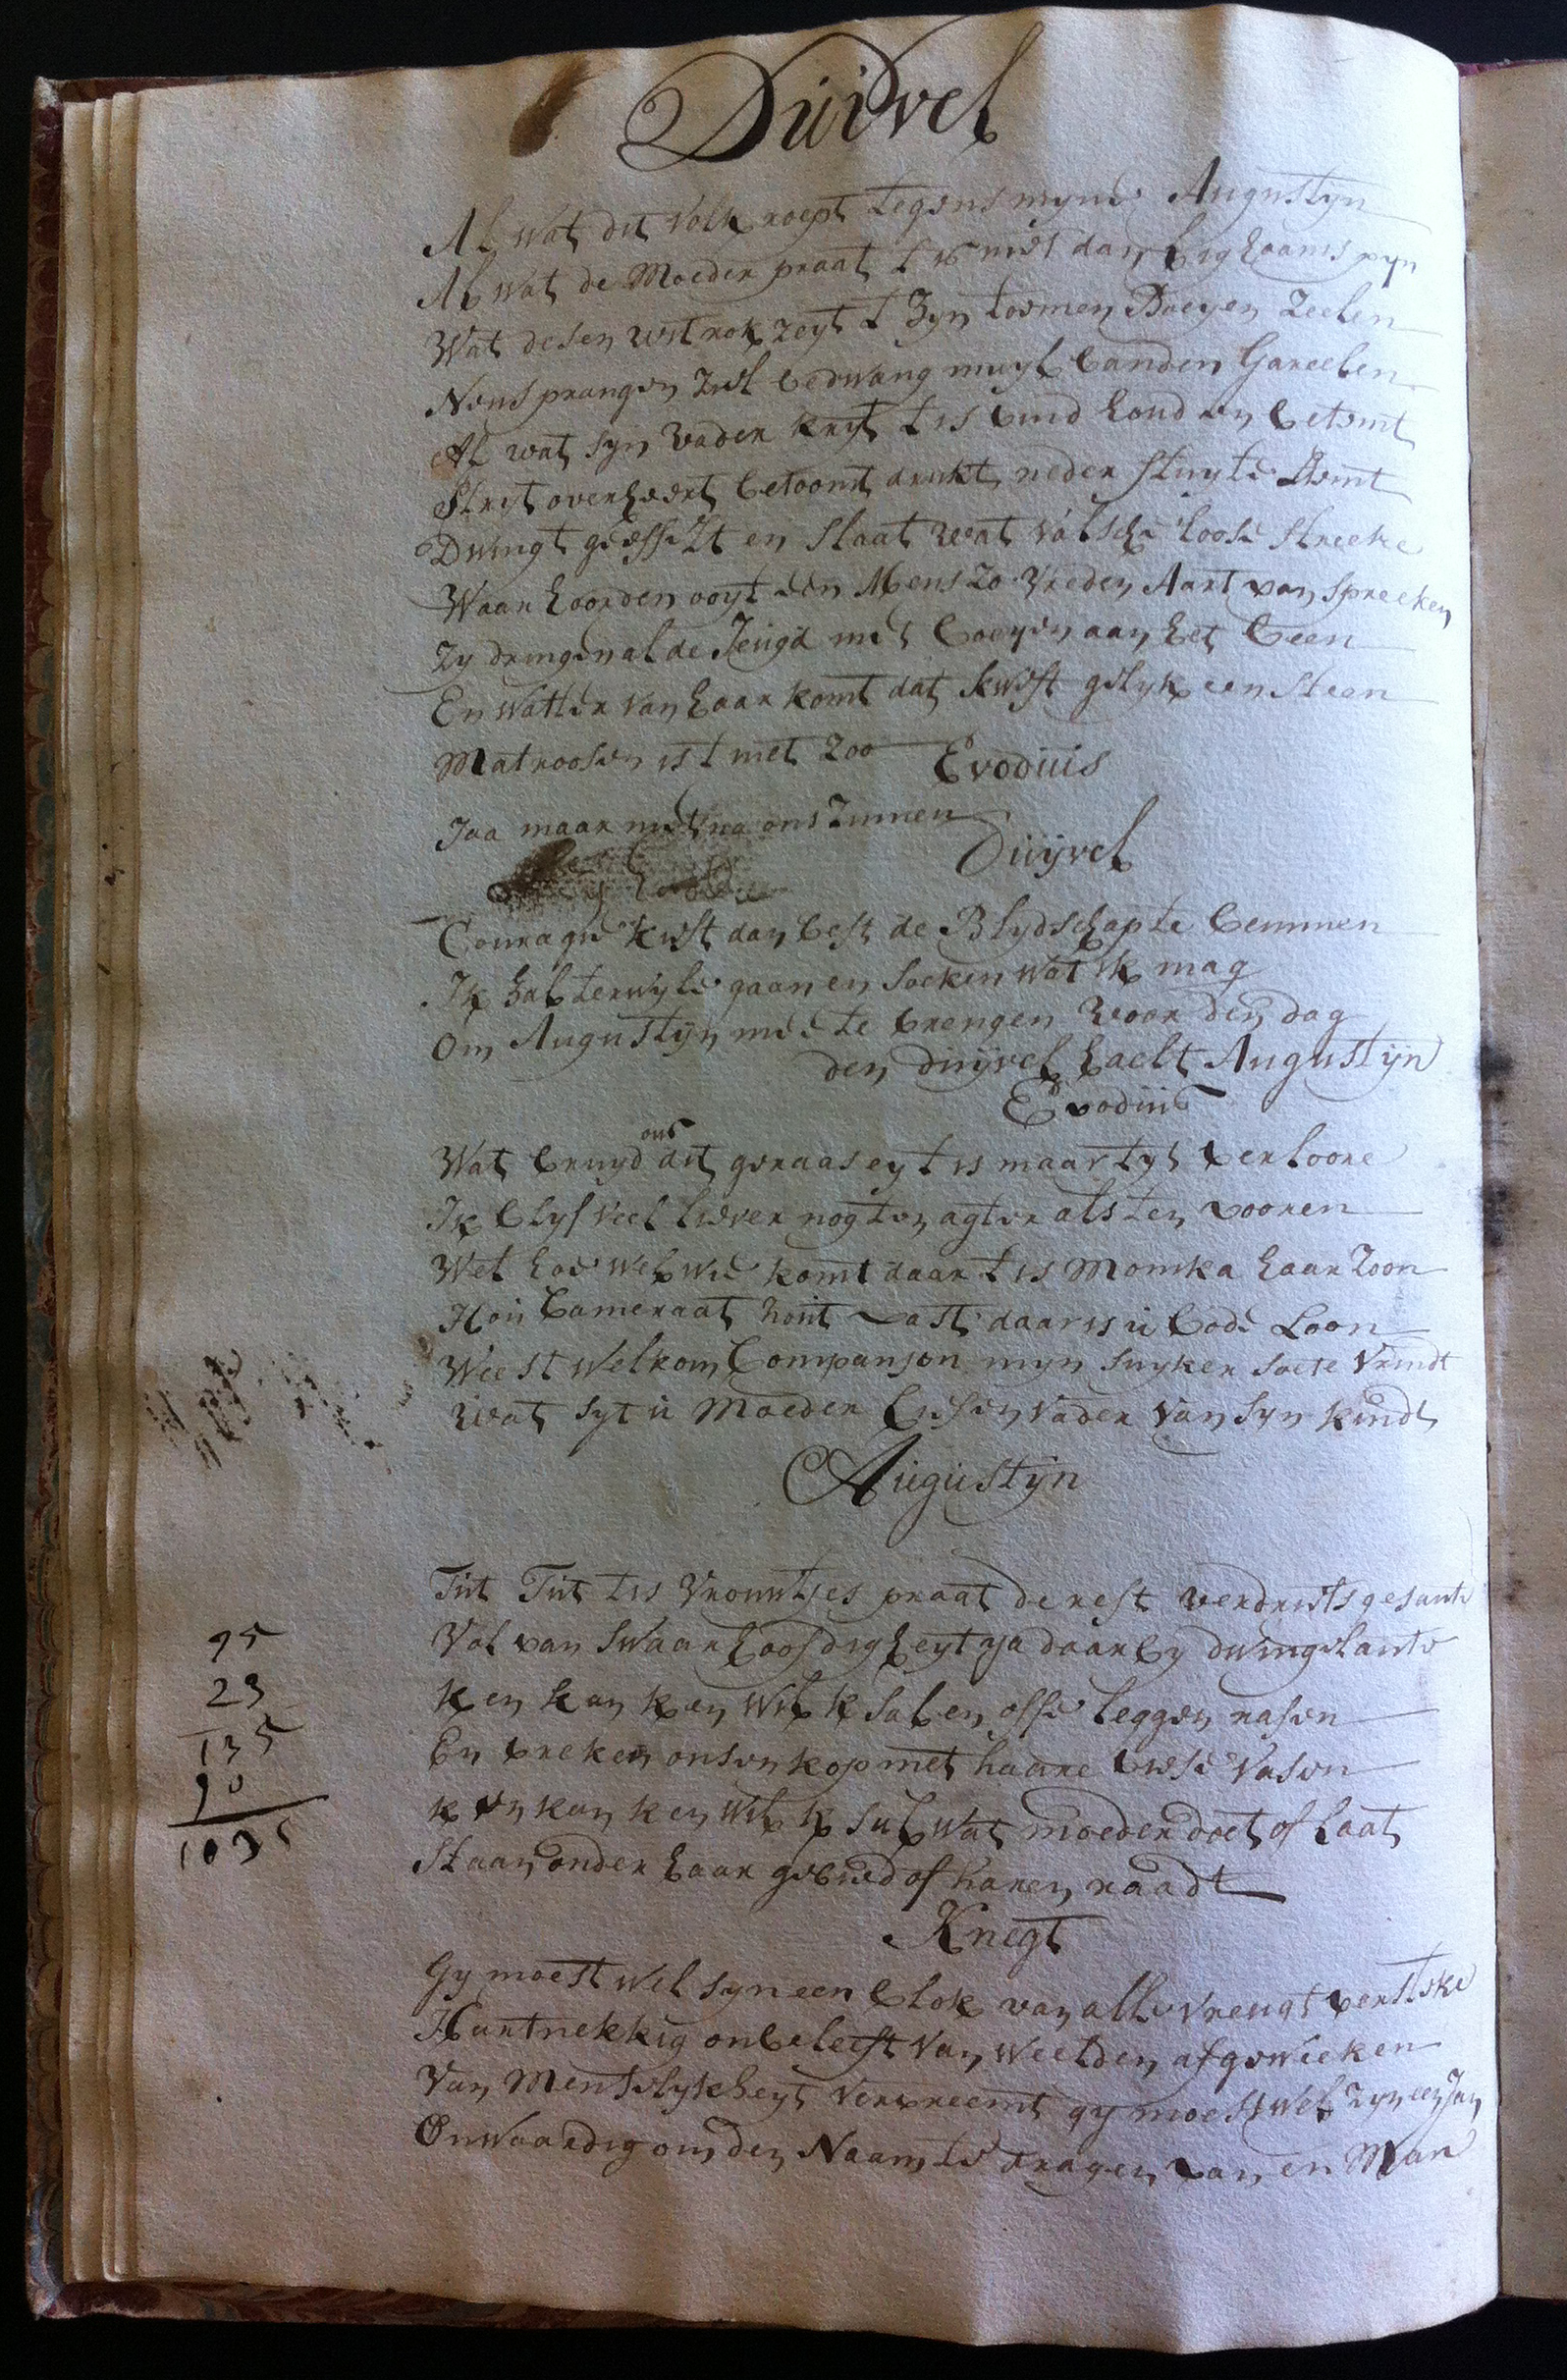 Düivel
Al wat dit volk roept tegens myne Augustyn
Al wat de Moeder praat t is niet dan lighaams pyn
Wat desen witrok zeyt t zyn toomen Boeyen Zeelen
Neus prangen Ziel bedwang muyl banden Gareelen
Al wat syn vader kryt t is bind houd en betemt
Stryt overheert betoomt drukt neder stuyte Stemt
Dwingt geesselt en slaat wat valsche loose streeke
Waar hoorden ooyt een Mens zo vreden Aart van spreeken
Zy dringen al de Jeugd met boeyen aan het been
En watter van haar komt dat kwist gelyk een steen
Matroosen ist niet zoo Evodius
Jaa maar niet na ons zinnen
Düijvel
Courage kist dan best de Blydschap te beminnen
Ik zal terwyle gaan en soeken wat ik mag
Om Augustijn mee te brengen voor den dag
den düijvel haelt Augustijn
Evodius
Wat bruyd ons dit geraas ey t is maar tyt verloore
Ik blyf veel liever nog ten agter als ten vooren
Wel hoe wel wie komt daar t is Monika haar zoon
Hou Cameraat hout vast daar is ü bode Loon
Weest welkom Companjon myn suyker soete vrindt
Wat syt ü Moeder en vader van syn kindt
Aügüstijn
Tüt Tüt t is vrouwtjes praat de rest verdriets gesante
Vol van swaarhoofdigheyt ja daar by dwingelante
K en kan k en wil k sal en offe leggen rasen
En breken onsen kop met haare viese vasen
k en kan k en wil k sal wat moeder doet of laat
Staan onder haar gebied of haren raadt
Knegt
Gy moest wel syn een blok van alle vreugt versteke
Hartnekkig onbeleeft van weelden afgeweeken
Van Menschlykheyt vervreemt gy moest wel zyn een Jan
Onwaardig om den Naam te dragen van en Man
95
23
135
90
1035